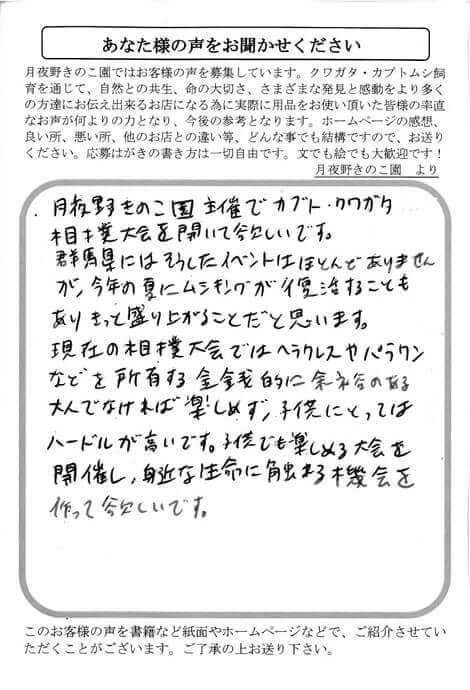 あなた様の声をお聞かせください
月夜野きのこ園ではお客様の声を募集しています。クワガタ・カブトムシ飼
育を通じて、自然との共生、命の大切さ、さまざまな発見と感動をより多く
の方達にお伝え出来るお店になる為に実際に用品をお使い頂いた皆様の率直
なお声が何よりの力となり、今後の参考となります。ホームページの感想、
良い所、悪い所、他のお店との違い等、どんな事でも結構ですので、お送り
ください。応募はがきの書き方は一切自由です。文でも絵でも大歓迎です！
月夜野きのこ園　より
月夜野きのこ園主催でカブト・クワガタ
相撲大会を開いて欲しいです。
群馬県にはそうしたイベントはほとんどありません
が、今年の夏にムシキングが復活することも
ありきっと盛り上がることだと思います。
現在の相撲大会ではヘラクレスやパラワン
などを所有する金銭的に余裕のある
大人でなければ楽しめず、子供にとっては
ハードルが高いです。子供でも楽しめる大会を
開催し、身近な生命に触れる機会を
作って欲しいです。
このお客様の声を書籍など紙面やホームページなどで、ご紹介させてい
ただくことがございます。ご了承の上お送り下さい。